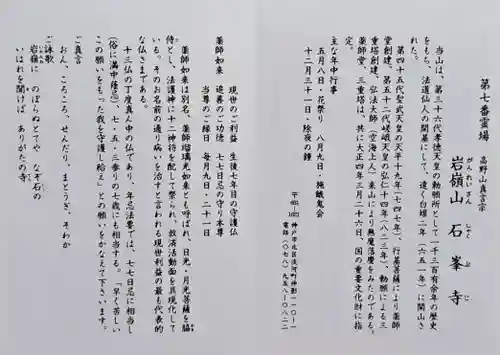 第七番霊場
高野山真言宗
がんれいざん しゃくぶじ
岩嶺山 石峯寺
当山は、第三十六代孝徳天皇の勅願所として一千三百有余年の歴史
をもち、法道仙人の開基にして、遠く白雉二年（六五一年）に開山さ
れた。
第四十五代聖武天皇の天平十九年（七四七年）、行基菩薩により薬師
堂創建、第五十二代嵯峨天皇の弘仁十四年（八二三年）、勅願による三
重塔創建、弘法大師（空海上人）来山により無魔落慶をみたのである。
薬師堂、三重塔は、共に大正四年三月二十六日、国の重要文化財に指
定。
主な年中行事
五月八日・花祭り 八月九日・施餓鬼会
十二月三十一日・除夜の鐘
神戸市北区淡河町神影一一〇ー一
電話（〇七八）九五八ー〇八二二
薬師如来 現世のご利益 生後七年目の守護仏
追善のご功徳 七七日忌の守り本尊
当尊のご縁日 毎月九日、二十一日
薬師如来は別名、薬師瑠璃光如来とも呼ばれ、日光・月光菩薩を脇
侍とし、法護神に十二神将を配して祭られ、救済活動面を具現化して
いる。そのお名前の通り病いを治すと言われる現世利益の最も代表的
な仏さまである。
十三仏の丁度真ん中の仏であり、年忌法要では、七七日忌に相当し
（俗に満中陰忌）、七・五・三参りの七歳にも相当する。「早く苦しい
この願いをもった我を守護し給え」との願いをかなえて下さいます。
ご真言
おん、ころころ、せんだり、まとうぎ、そわか
ご詠歌
岩嶺に のぼらぬとてや なぞ石の
いはれを聞けば ありがたの寺